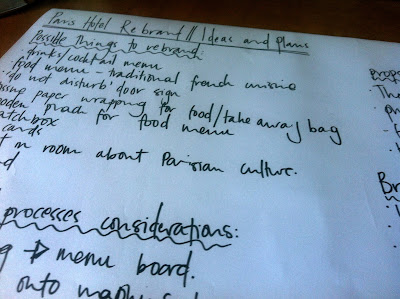 Paris Hotel Rebrand // Ideas and plans
Possible things to rebrand:
· drinks/cocktail menu
· food menu - traditional french cuisine
· 'do not disturb' door sign
paper wrapping for food/take away/bag
for food menu
matchbox
cards
room about Parisian culture.
processes considerations:
menu board.
onto